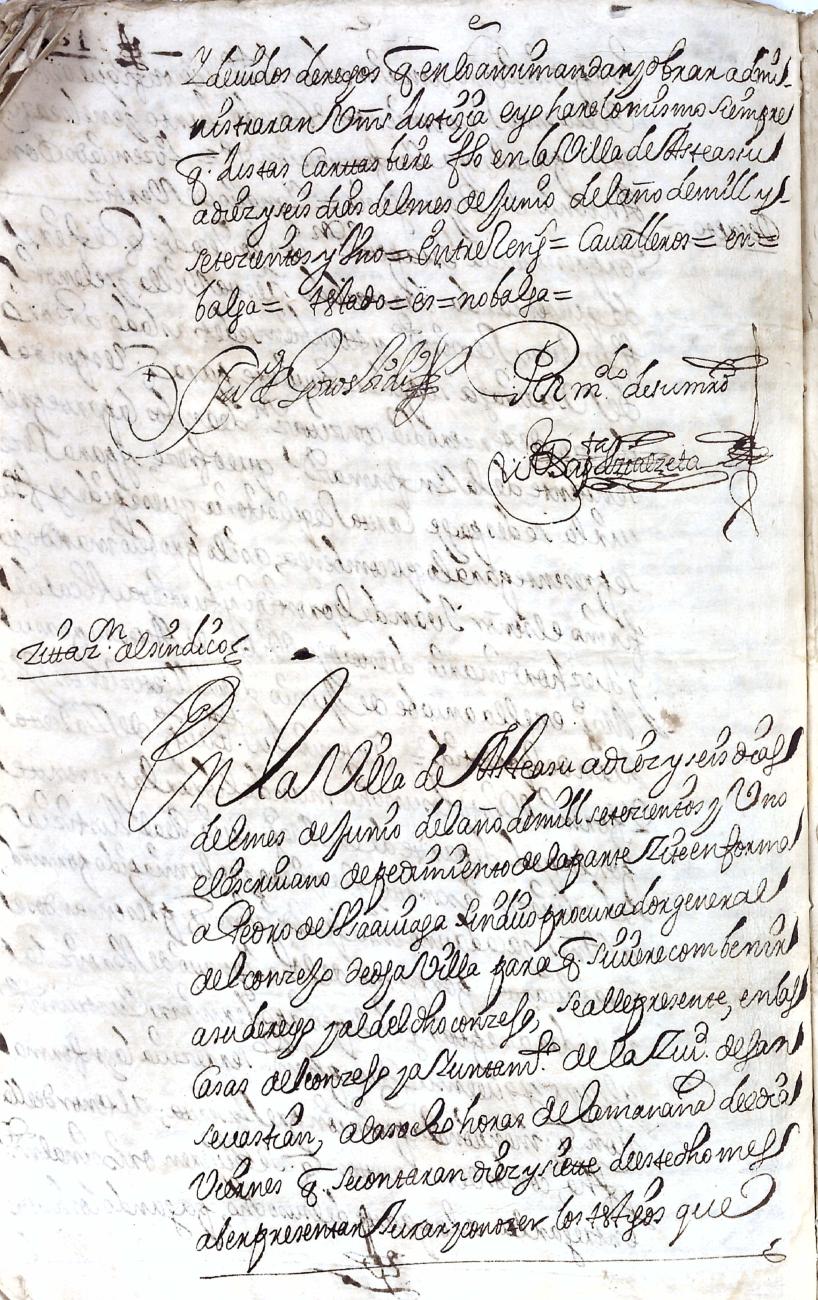 Y deuidos derechos q̃ en lo ansi mandar y obrar admi-
nistraran Vms. Justiçia e yo hare lo mismo siempre
q̃. las tas Cartas biere fho en la Villa de Asteasu
a diez y seis dias del mes de Junio del año de mill y-
setezientos y Vno= entre Reng= Caualleros= en=
balga= testado= es= no balga=
Por m.do de su mrd
Zittaz.on al sindico
En la Villa de Asteasu a diez y seis dias
del mes de Junio del año de mill setezientos y Vno
el escriuano de pedimiento de la parte Zite en forma
a Pedro de sindico procurador general
del conzejo de dha Villa para q̃. si viere combenir
a su derecho y al del dho conzejo, se alle presente, en las
Casas del conzejo y a Yuntam.to de la Ziud. de san
seuastian, a las ocho horas de la mañana del dia
Viernes q̃. se contaran diez y siette de este dho mes
a ber presentar Jurar y conozer los testigos que